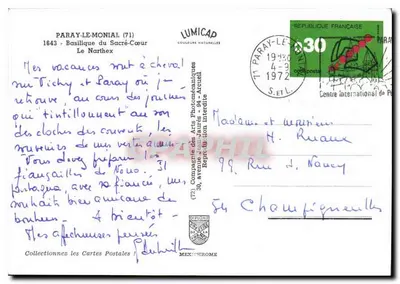 PARAY-LE-MONIAL (71)
1643 - Basilique du Sacré-Cœur
Le Narthex
LUMICAP
COULEURS NATURELLES
RÉPUBLIQUE FRANÇAISE
0,30
71 PARAY-LE-MONIAL
19
4-3
1972
S.et L.
Centre International de P
Mes vacances sont à cheval
sur Vichy et Paray où je
retrouve, au cours des journées
qui tintillonnent au son
des cloches des couvents, les
souvenirs de mes
Vous devez préparer les
fiançailles de
avec sa fiancée, vous
souhaite bien amicane de
bonheur. A bientôt -
Mes affectueuses pensées
Madame et monsieur
H. Ruaux
99, Rue J. Nancy
54 Champigneulles
(71) Compagnie des Arts Photomécaniques
30, avenue Jean-Jaurès - 94 - Arcueil
Reproduction interdite
Collectionnez les Cartes Postales !
MEXICHROME